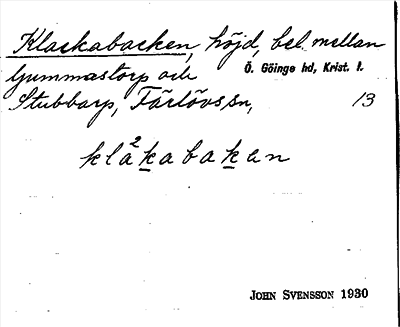 Klackabacken, höjd, bel. mellan
Gummastorp och Ö. Göinge hd, Krist. l.
Stubbarp, Färlövs sn, 13
kla²kabakən
JOHN SVENSSON 1930